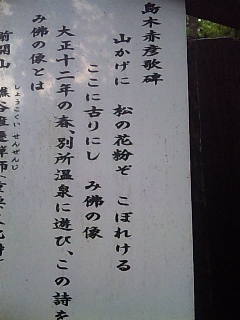 島木赤彦歌碑
山かげに 松の花粉ぞ こぼれける
ここに古りにし み佛の像
大正十二年の春、別所温泉に遊び、この詩を
み佛の像とは
前開山
しょうこくい ぜんぜんじ